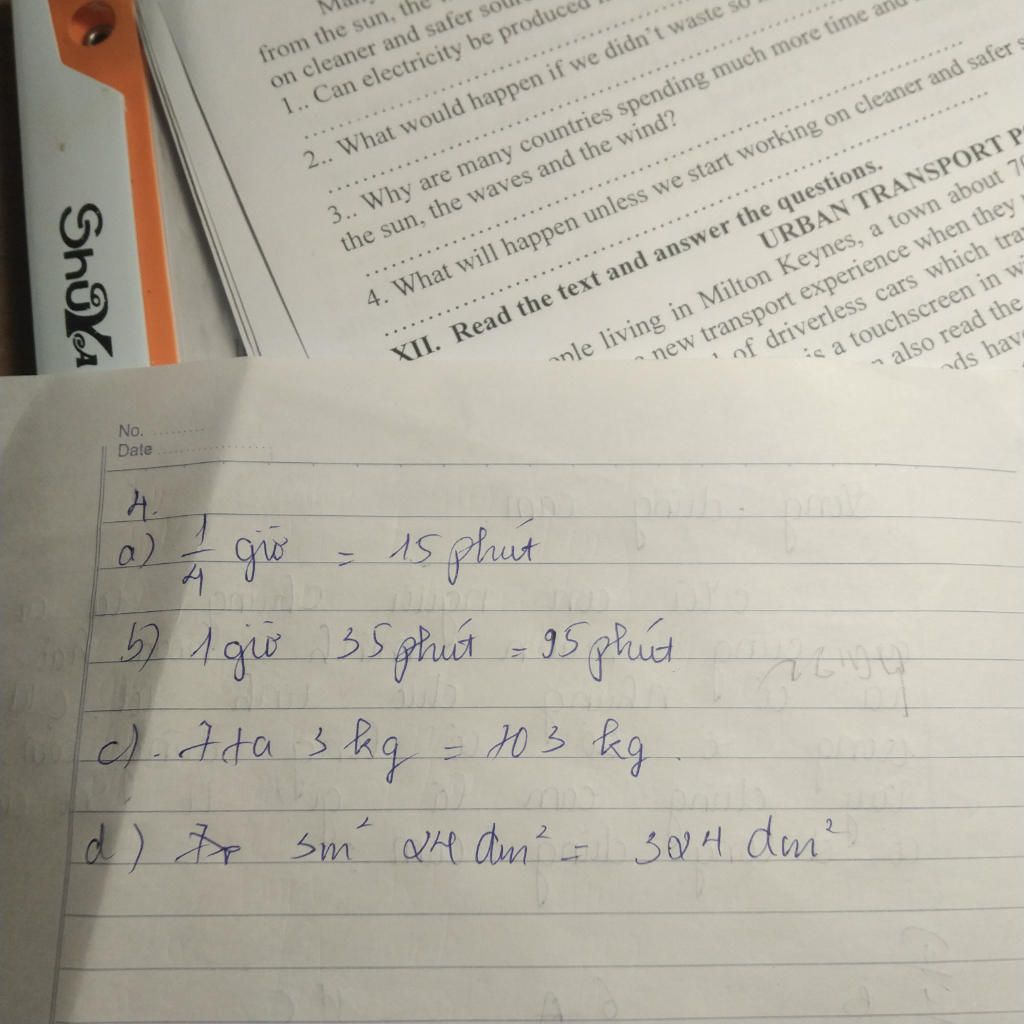 from the sun, the
on cleaner and safer sour
1.. Can electricity be produced
2.. What would happen if we didn't waste so
3.. Why are many countries spending much more time and
the sun, the waves and the wind?
4. What will happen unless we start working on cleaner and safer s
XII. Read the text and answer the questions.
URBAN TRANSPORT P
ple living in Milton Keynes, a town about 70
new transport experience when they
of driverless cars which tra
is a touchscreen in wi
also read the
ods hav
ShuYa
No.
Date
4.
a) 1/4 giờ = 15 phút
b) 1 giờ 35 phút = 95 phút
c). 7 tạ 3 kg = 703 kg.
d) 3m² 24 dm² = 324 dm²